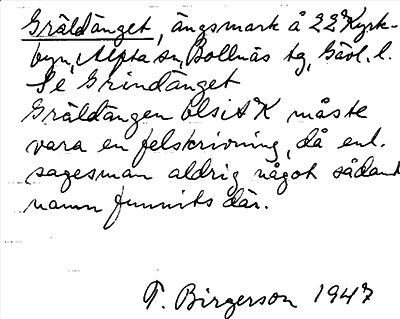 Gräldänget, ängsmark å 22² Kyrk-
byn, Alfta sn, Bollnäs tg, Gävl. l.
Se Grindänget
Gräldängen bls i AK måste
vara en felskrivning, då enl.
sagesman aldrig något sådant
namn funnits där.
T. Birgerson 1947